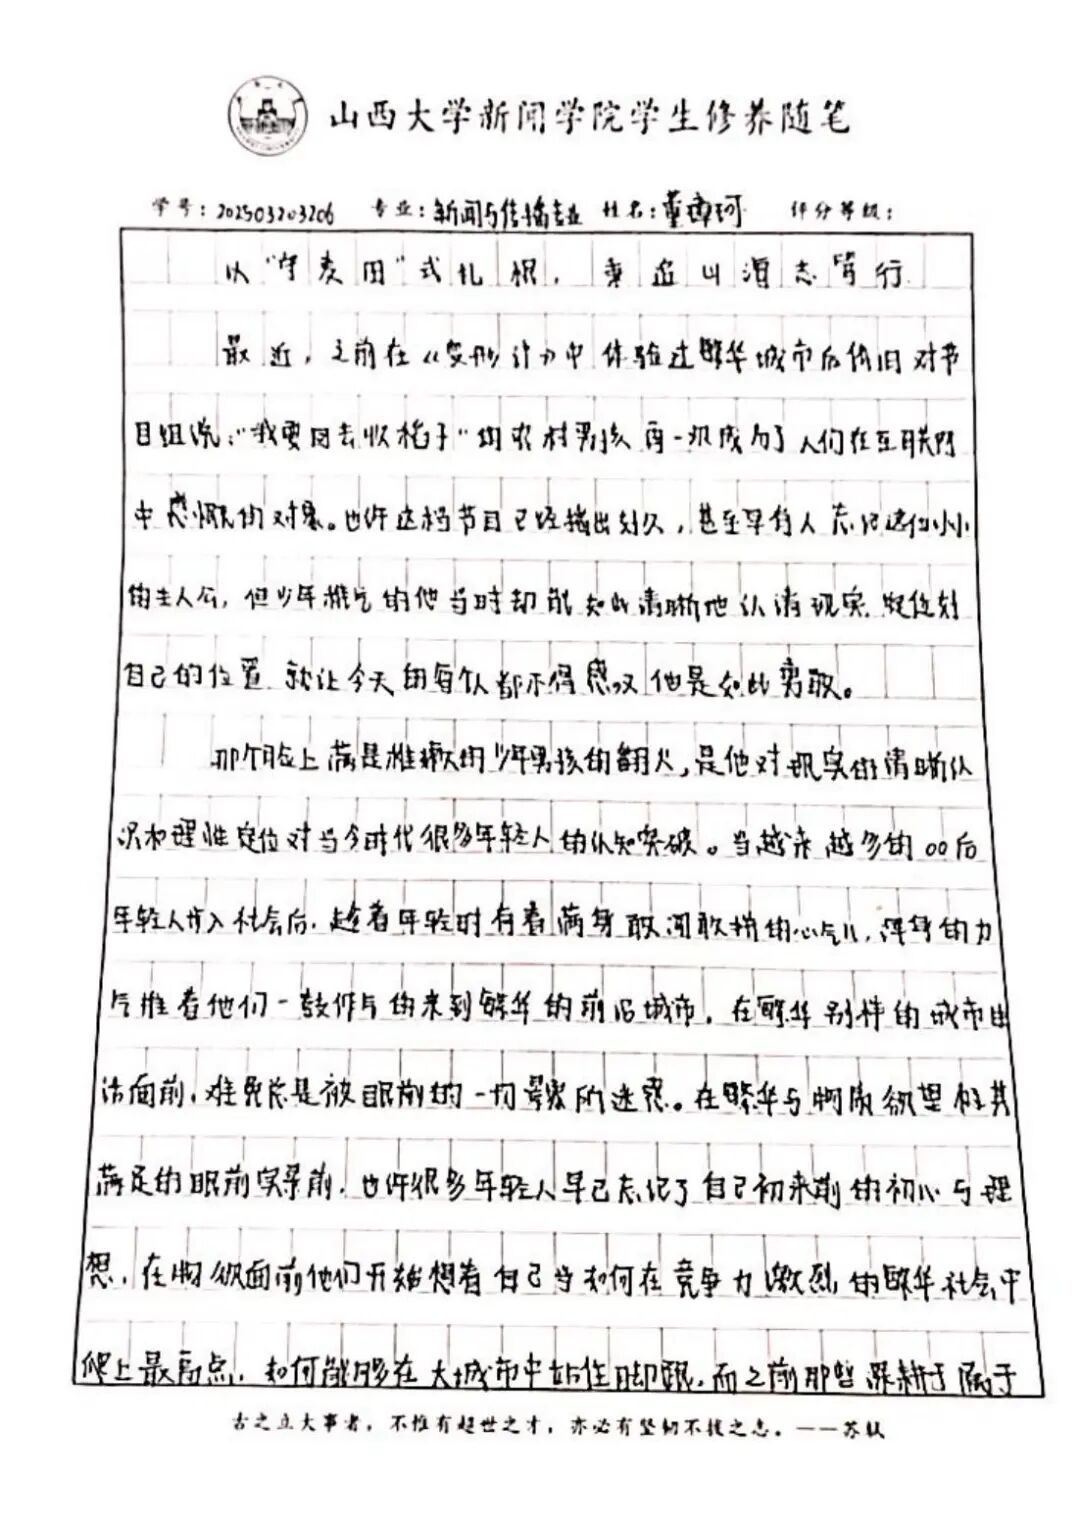 山西大学新闻学院学生修养随笔
学号：202503203206 专业：新闻与传播专业 姓名：董 珂 评分等级：
以“守麦田”式扎根，乘追山海志笃行
最近，之前在《变形计》中体验过繁华城市后依旧对节
目组说：“我要回去收稻子”的农村男孩再一次成为了人们在互联网
中感慨的对象。也许这档节目已经播出划久，甚至早有人忘记这位小小
的主人公，但少年稚气的他当时却能如此清晰地认清现实 定位好
自己的位置 就让今天的每个人都不得感叹他是如此勇敢。
那个脸上满是稚嫩的少年男孩的翻火，是他对现实的清晰认
识和理性定位对当今时代很多年轻人的认知突破。当越来越多的00后
年轻人步入社会后，趁着年轻时有着满身敢闯敢拼的心气儿，浑身的力
气推着他们一致的来到繁华的前沿城市，在繁华别样的城市生
活面前，难免总是被眼前的一切景象所迷惑。在繁华与物质欲望极其
满足的眼前实景前，也许很多年轻人早已忘记了自己初来前的初心与理
想，在物欲面前他们开始想着自己当如何在竞争力激烈的繁华社会中
爬上最高点，如何能够在大城市中站住脚跟，而之前那些 于属于
古之立大事者，不惟有超世之才，亦必有坚韧不拔之志。——苏轼